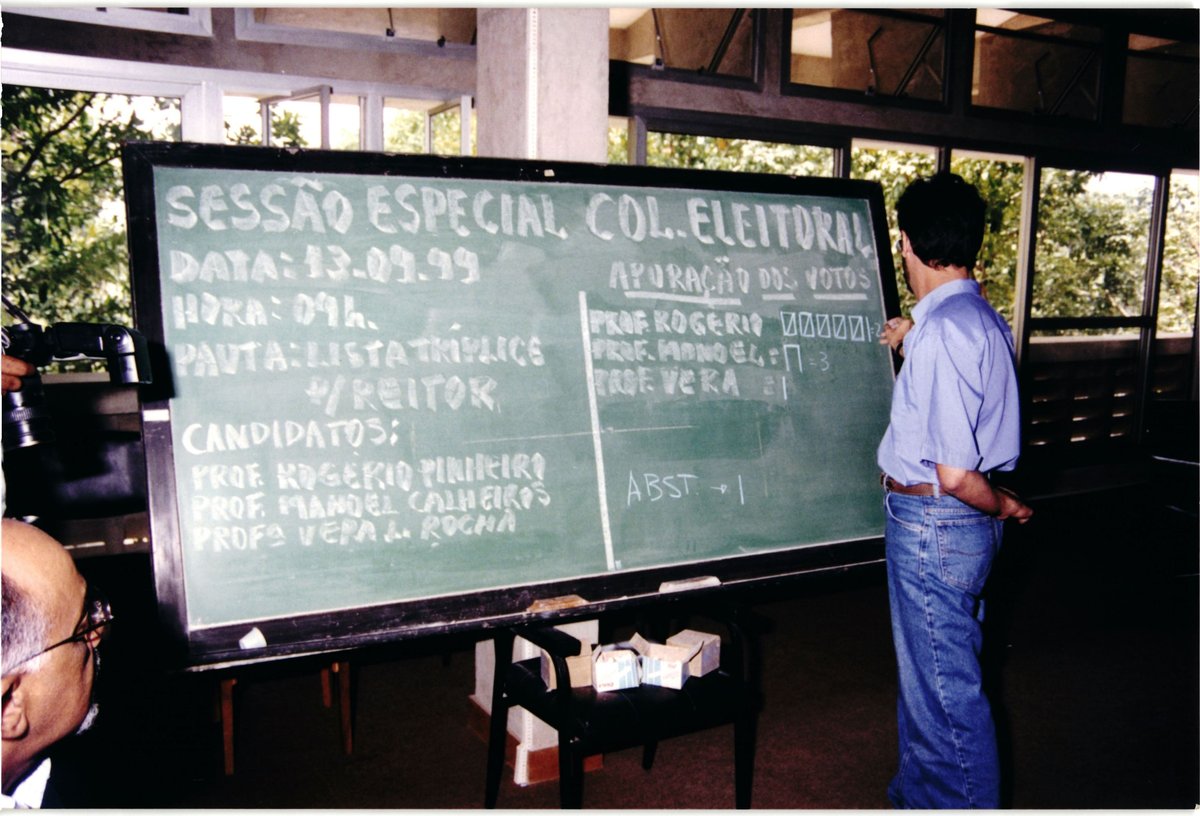 SESSÃO ESPECIAL COL. ELEITORAL
DATA: 13.09.99
HORA: 09h.
PAUTA: LISTA TRÍPLICE
P/ REITOR
CANDIDATOS:
PROF. ROGÉRIO PINHEIRO
PROF. MANOEL CALHEIROS
PROFª VERA L. ROCHA
APURAÇÃO DOS VOTOS
PROF. ROGÉRIO
PROF. MANOEL: - 3
PROF. VERA : 1
ABST. → 1